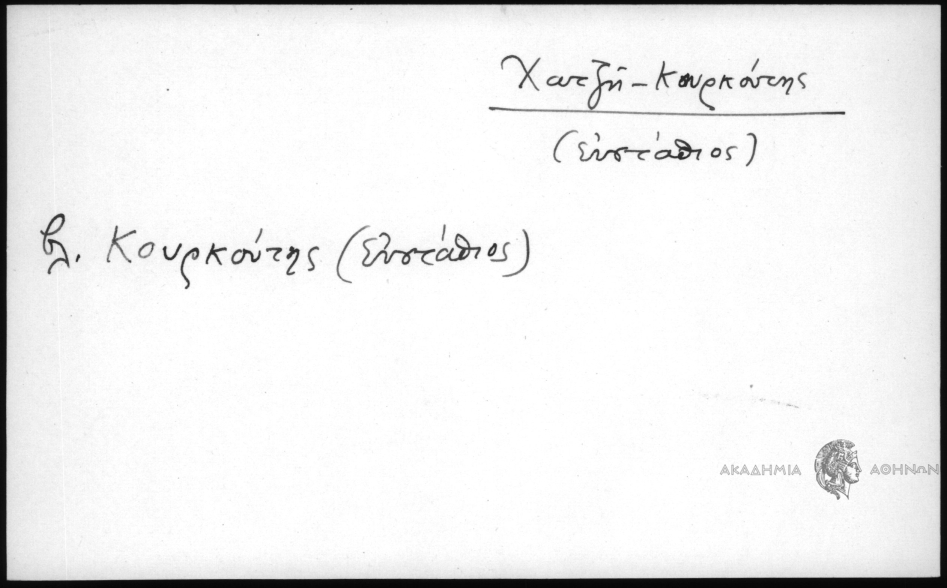 Χατζή-Κουρκούτης
(Εὐστάθιος)
βλ. Κουρκούτης (Εὐστάθιος)
ΑΚΑΔΗΜΙΑ ΑΘΗΝΩΝ